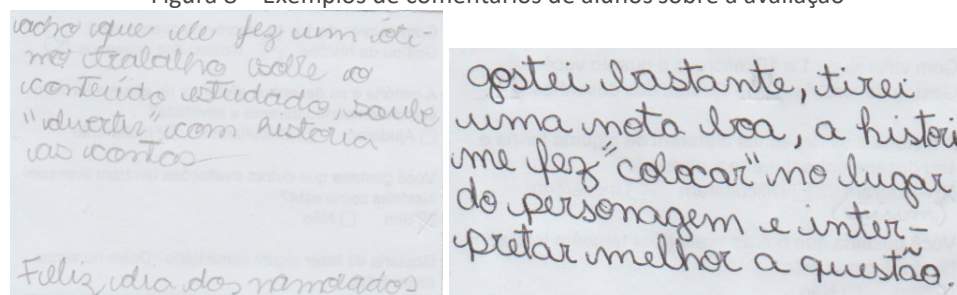 Figura 8 – Exemplos de comentários de alunos sobre a avaliação
acho que ele fez um óti-
mo trabalho sobre o
conteúdo estudado soube
"divertir" com historia
as contas
Feliz dia dos namorados
gostei bastante, tirei
uma nota boa, a histori
me fez "colocar" no lugar
do personagem e inter-
pretar melhor a questão.